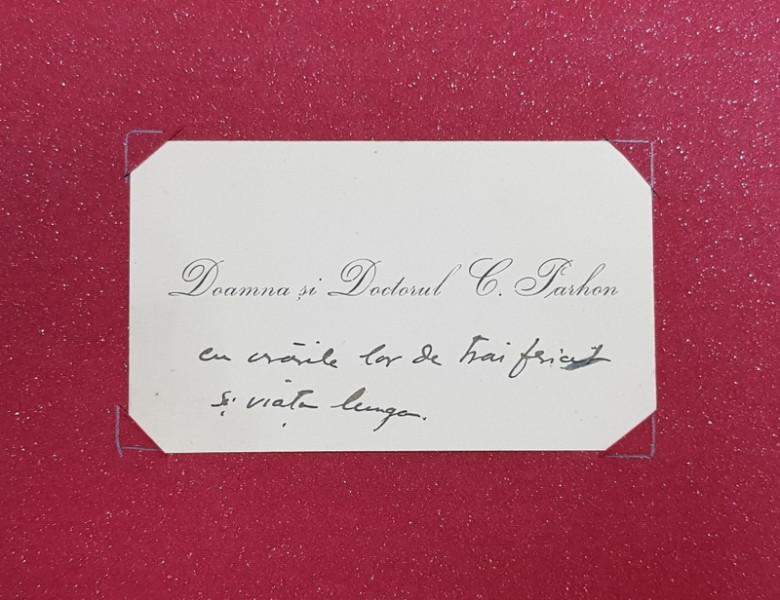 Doamna și Doctorul C. Parhon
cu urările lor de trai fericit
și viață lunga.